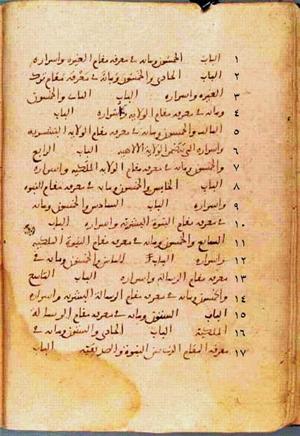 ١ الباب الخمسون ومائه في معرفه مقام الغيره واسراره
٢ الباب الحادي والخمسون ومائه في معرفه مقام ترك
٣ الغيره واسراره الباب الثاني والخمسون
٤ ومائه في معرفه مقام الولايه واسراره الباب
٥ الثالث والخمسون ومائه في معرفه مقام الولايه البشريه
٦ الولايه الالهيه الباب الرابع
٧ والخمسون ومائه في معرفه مقام الولايه الملكيه واسراره
٨ الباب الخامس والخمسون ومائه في معرفه مقام النبوه
٩ واسراره الباب السادس والخمسون ومائه
١٠ في معرفه مقام النبوة البشريه واسراره الباب
١١ السابع والخمسون ومائه في معرفه مقام النبوة الملكيه
١٢ واسراره الباب الثامن والخمسون ومائه في
١٣ معرفه مقام الرسالة واسراره الباب التاسع
١٤ والخمسون ومائه في معرفه مقام الرسالة البشريه واسراره
١٥ الباب الستون ومائه في معرفه مقام الرسالة
١٦ الملكية الباب الحادي والستون ومائه في
١٧ معرفه المقام الذي بين النبوة والصديقيه الباب